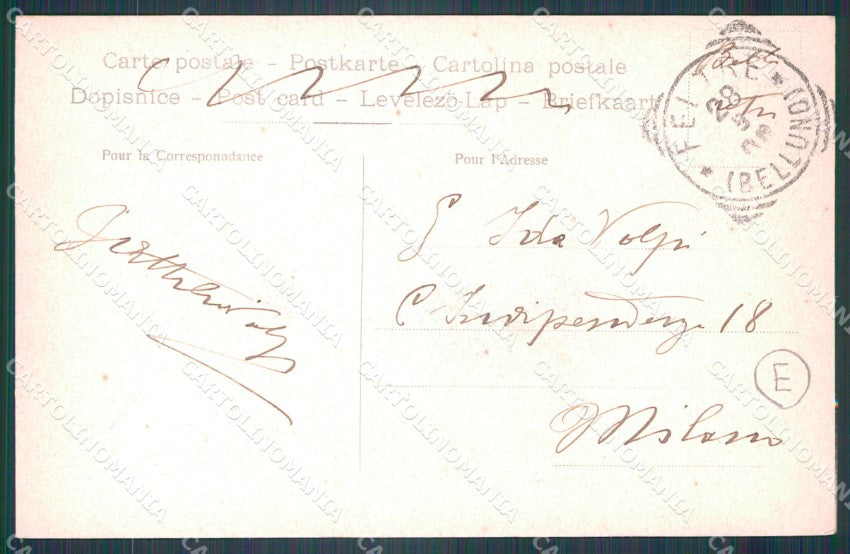 Carte postale - Postkarte - Cartolina postale
Dopisnice - Post card - Levelező-Lap - Briefkaart
Pour la Correspondance
Pour l'Adresse
FELTRE
(BELLUNO)
28
Ida Volpi
C Indipendenza 18
E
Milano
CARTOLINOMANIA